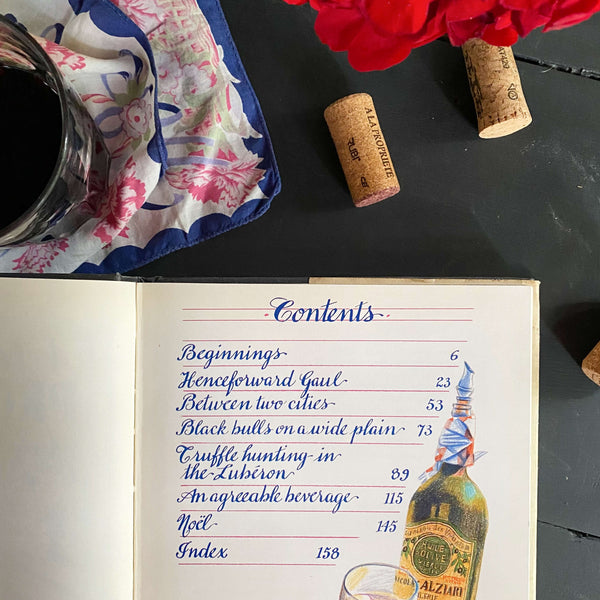 A LA PROPRIETE
Contents
Beginnings 6
Henceforward Gaul 23
Between two cities 53
Black bulls on a wide plain 73
Truffle hunting in
the Lubéron 89
An agreeable beverage 115
Noël 145
Index 158
HUILE
D'OLIVE
ALZIARI